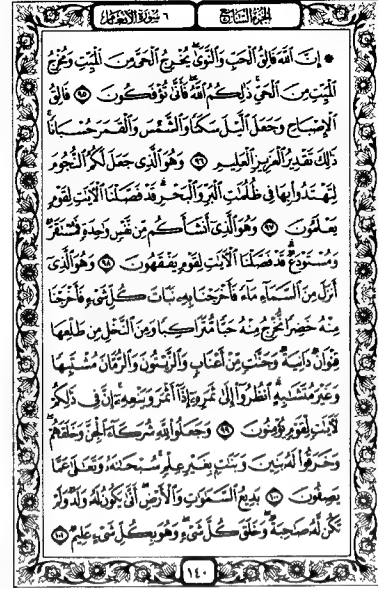 الجزء السابع ٦ سورة الأنعام
۞ إِنَّ ٱللَّهَ فَالِقُ ٱلْحَبِّ وَٱلنَّوَىٰ يُخْرِجُ ٱلْحَيَّ مِنَ ٱلْمَيِّتِ وَمُخْرِجُ
ٱلْمَيِّتِ مِنَ ٱلْحَيِّ ذَٰلِكُمُ ٱللَّهُ فَأَنَّىٰ تُؤْفَكُونَ ٩٥ فَالِقُ
ٱلْإِصْبَاحِ وَجَعَلَ ٱلَّيْلَ سَكَنًا وَٱلشَّمْسَ وَٱلْقَمَرَ حُسْبَانًا
ذَٰلِكَ تَقْدِيرُ ٱلْعَزِيزِ ٱلْعَلِيمِ ٩٦ وَهُوَ ٱلَّذِى جَعَلَ لَكُمُ ٱلنُّجُومَ
لِتَهْتَدُوا۟ بِهَا فِى ظُلُمَٰتِ ٱلْبَرِّ وَٱلْبَحْرِ قَدْ فَصَّلْنَا ٱلْآيَٰتِ لِقَوْمٍ
يَعْلَمُونَ ٩٧ وَهُوَ ٱلَّذِىٓ أَنشَأَكُم مِّن نَّفْسٍ وَٰحِدَةٍ فَمُسْتَقَرٌّ
وَمُسْتَوْدَعٌ قَدْ فَصَّلْنَا ٱلْآيَٰتِ لِقَوْمٍ يَفْقَهُونَ ٩٨ وَهُوَ ٱلَّذِىٓ
أَنزَلَ مِنَ ٱلسَّمَآءِ مَآءً فَأَخْرَجْنَا بِهِۦ نَبَاتَ كُلِّ شَىْءٍ فَأَخْرَجْنَا
مِنْهُ خَضِرًا نُّخْرِجُ مِنْهُ حَبًّا مُّتَرَاكِبًا وَمِنَ ٱلنَّخْلِ مِن طَلْعِهَا
قِنْوَانٌ دَانِيَةٌ وَجَنَّٰتٍ مِّنْ أَعْنَابٍ وَٱلزَّيْتُونَ وَٱلرُّمَّانَ مُشْتَبِهًا
وَغَيْرَ مُتَشَٰبِهٍ ٱنظُرُوٓا۟ إِلَىٰ ثَمَرِهِۦٓ إِذَآ أَثْمَرَ وَيَنْعِهِۦٓ إِنَّ فِى ذَٰلِكُمْ
لَآيَٰتٍ لِّقَوْمٍ يُؤْمِنُونَ ٩٩ وَجَعَلُوا۟ لِلَّهِ شُرَكَآءَ ٱلْجِنَّ وَخَلَقَهُمْ
وَخَرَقُوا۟ لَهُۥ بَنِينَ وَبَنَٰتٍۭ بِغَيْرِ عِلْمٍ سُبْحَٰنَهُۥ وَتَعَٰلَىٰ عَمَّا
يَصِفُونَ ١٠٠ بَدِيعُ ٱلسَّمَٰوَٰتِ وَٱلْأَرْضِ أَنَّىٰ يَكُونُ لَهُۥ وَلَدٌ وَلَمْ
تَكُن لَّهُۥ صَٰحِبَةٌ وَخَلَقَ كُلَّ شَىْءٍ وَهُوَ بِكُلِّ شَىْءٍ عَلِيمٌ ١٠١
١٤٠